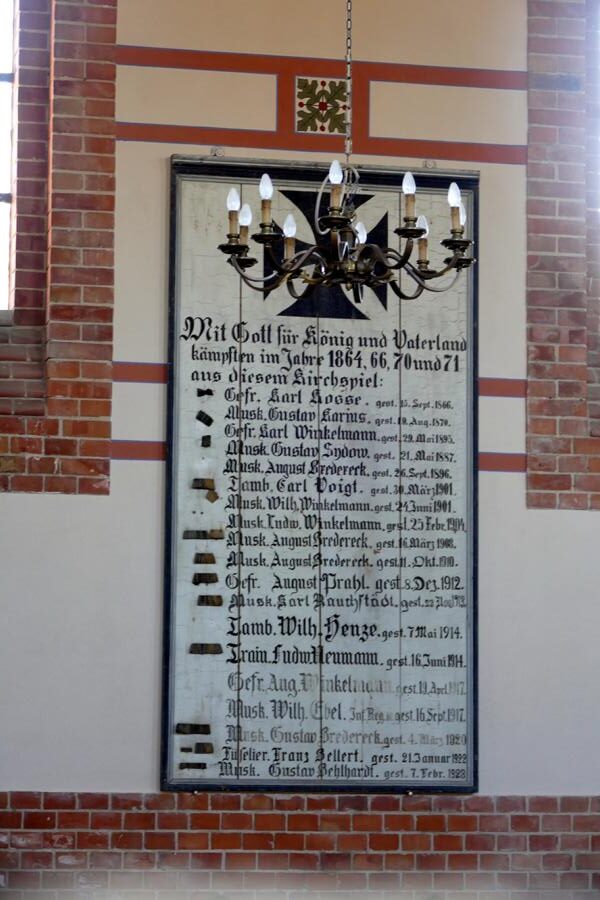 Mit Gott für König und Vaterland
kämpften im Jahre 1864, 66, 70 und 71
aus diesem Kirchspiel:
Gefr. Karl Kosse. gest. 15. Sept. 1866.
Musk. Gustav Karius. gest. 19. Aug. 1870.
Gefr. Karl Winkelmann. gest. 29. Mai 1895.
Musk. Gustav Sydow. gest. 21. Mai 1887.
Musk. August Bredereck. gest. 26. Sept. 1896.
Tamb. Carl Voigt. gest. 30. März 1901.
Musk. Wilh. Winkelmann. gest. 24 Juni 1901.
Musk. Ludw. Winkelmann. gest. 25 Febr. 1904.
Musk. August Bredereck. gest. 16. März 1908.
Musk. August Bredereck. gest. 11. Okt. 1910.
Gefr. August Prahl. gest. 8. Dez. 1912.
Musk. Karl Rauchstädt. gest. 22
Tamb. Wilh. Henze. gest. 7 Mai 1914.
Train. Ludw. Neumann. gest. 16. Juni 1914.
Gefr. Aug. Winkelmann. gest. 19. Apr. 1917.
Musk. Wilh. Ebel. gest. 16. Sept. 1917.
Musk. Gustav Bredereck. gest. 4. März 1920
Füselier. Franz Sellert. gest. 21. Januar 1922
Musk. Gustav Behlhardt. gest. 7. Febr. 1923